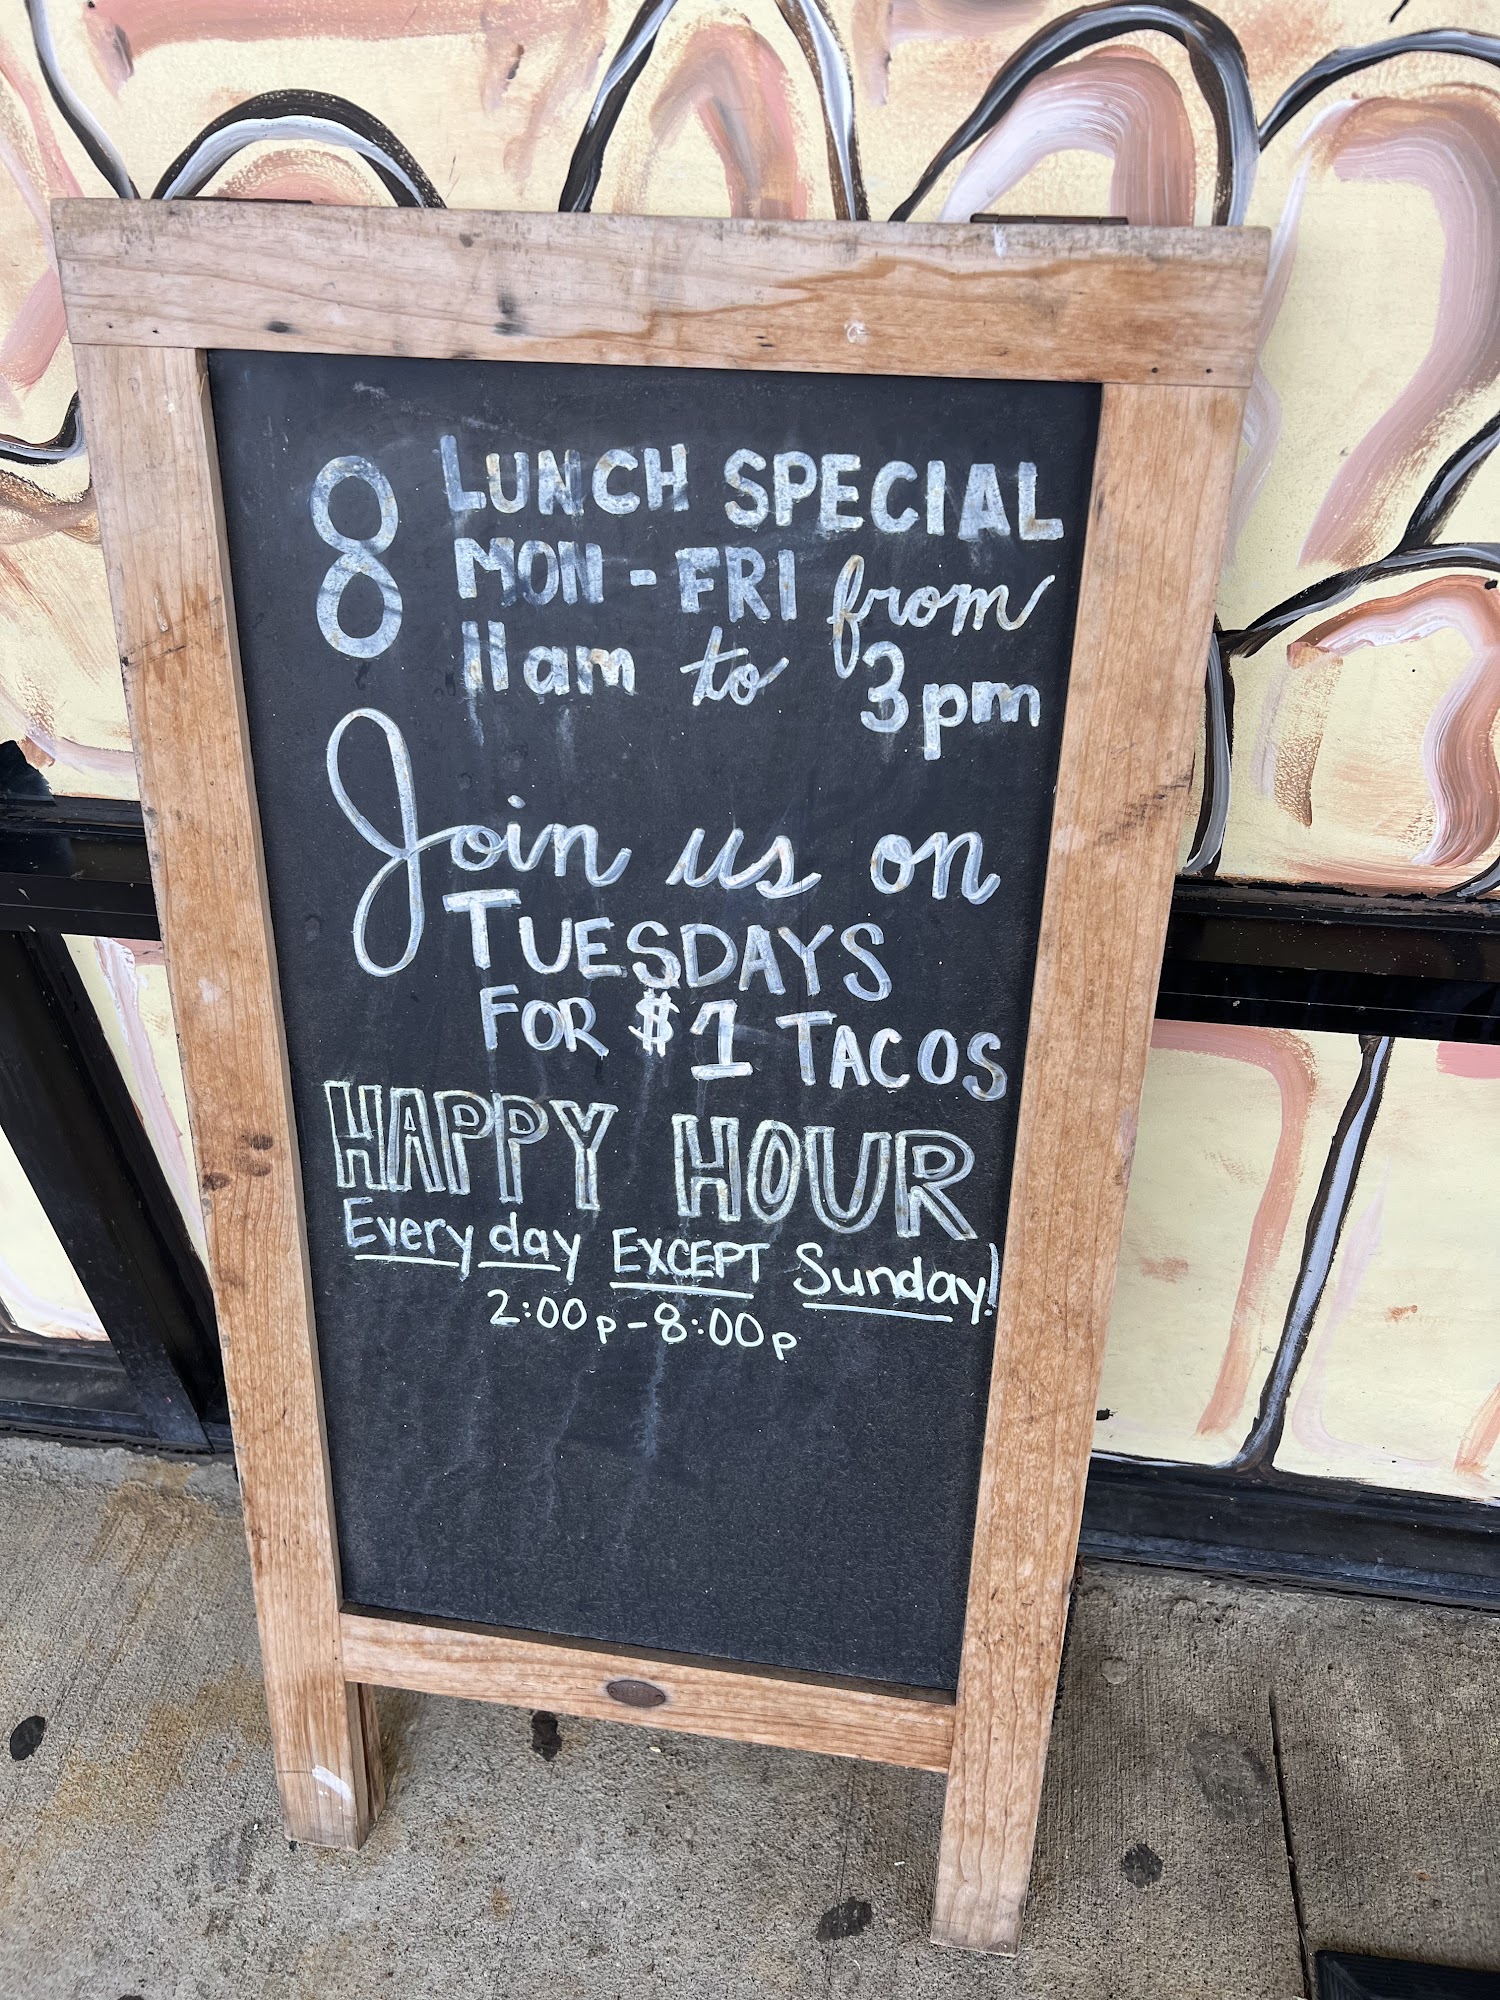 8 LUNCH SPECIAL
MON - FRI from
11am to 3pm
Join us on
TUESDAYS
FOR $1 TACOS
HAPPY HOUR
Every day EXCEPT Sunday!
2:00p - 8:00p